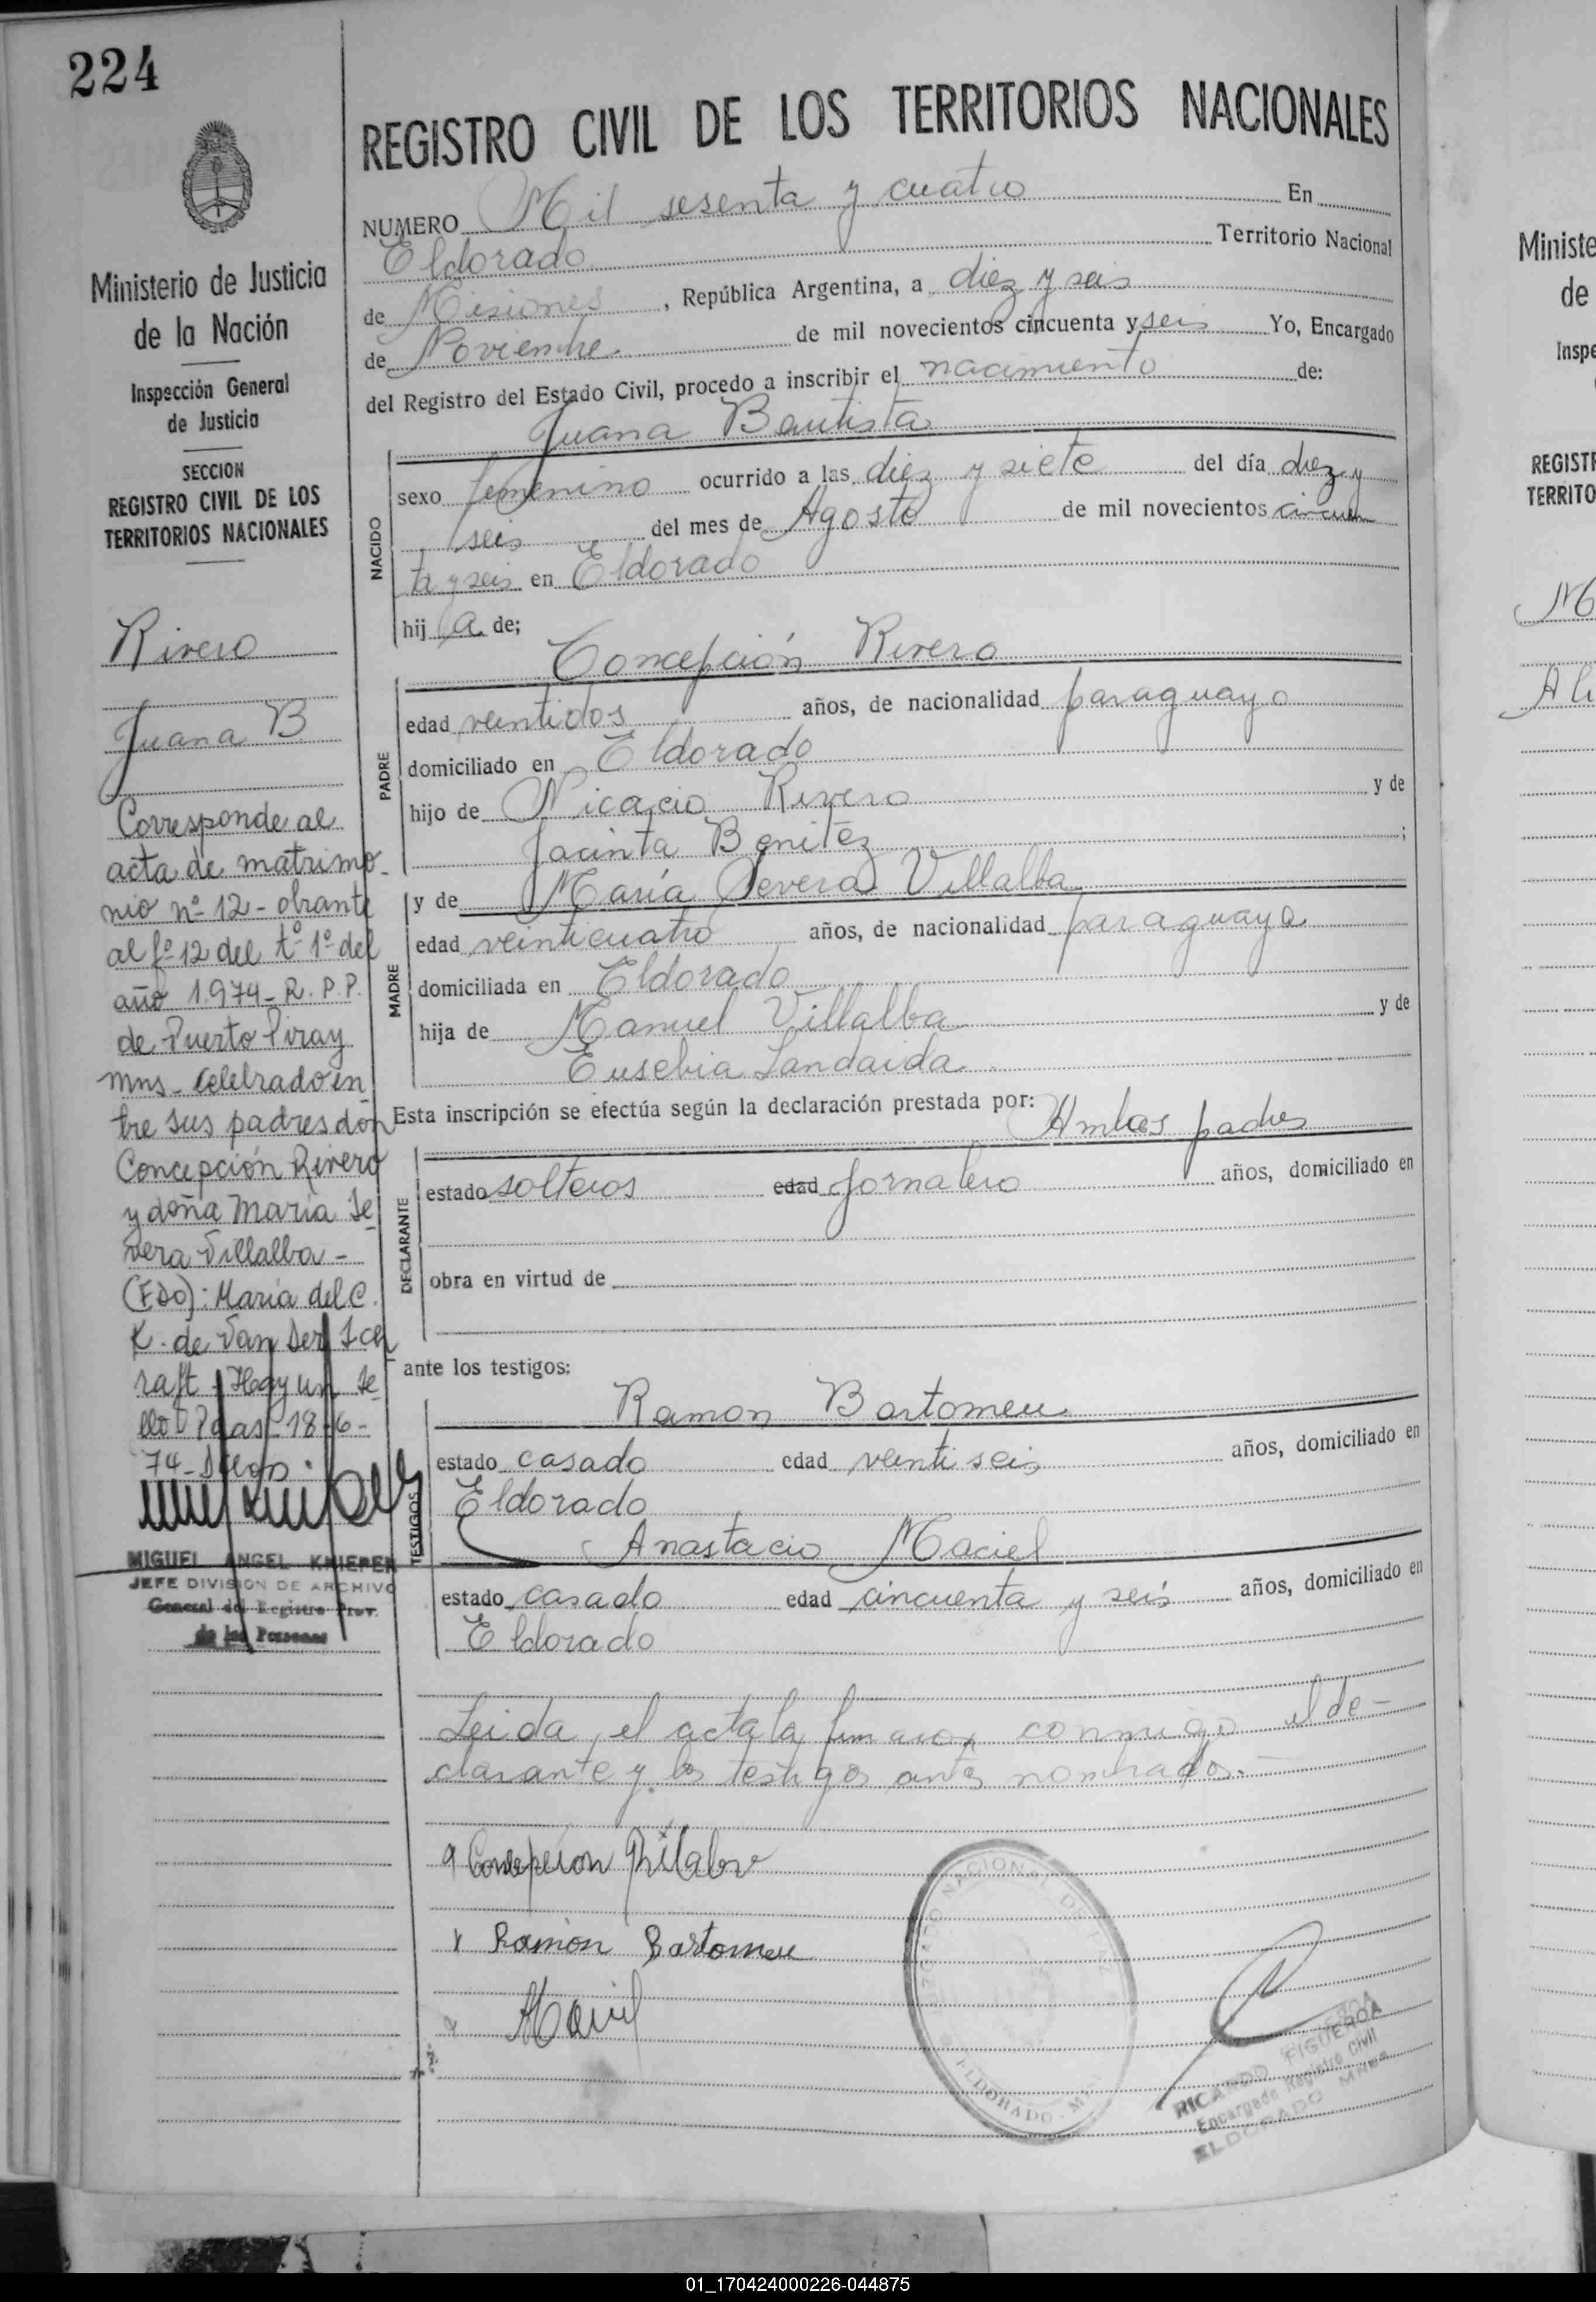 224
REGISTRO CIVIL DE LOS TERRITORIOS NACIONALES
Ministerio de Justicia
de la Nación
Inspección General
de Justicia
SECCION
REGISTRO CIVIL DE LOS
TERRITORIOS NACIONALES
Rivero
Juana B
Corresponde al
acta de matrimo-
nio nº 12 - obrante
al fº 12 del tº 1º del
año 1.974 - R. P. P.
de Puerto Piray
Mns - Celebrado en
tre sus padres don
Concepción Rivero
y doña María Se
vera Villalba -
(FDO): María del C.
K. de Van Der
raft - Hay un se
llo Pdas - 18-6-
74 -
MIGUEL ANGEL KNIEPER
JEFE DIVISION DE ARCHIVO
General del Registro Prov.
de las Personas
NUMERO Mil sesenta y cuatro En
Eldorado Territorio Nacional
de Misiones, República Argentina, a diez y seis
de Noviembre de mil novecientos cincuenta y seis Yo, Encargado
del Registro del Estado Civil, procedo a inscribir el nacimiento de:
Juana Bautista
NACIDO
sexo femenino ocurrido a las diez y siete del día diez y
seis del mes de Agosto de mil novecientos cincuen
ta y seis en Eldorado
hij a de;
Concepción Rivero
PADRE
edad veintidos años, de nacionalidad paraguayo
domiciliado en Eldorado
hijo de Nicacio Rivero y de
Jacinta Benitez ;
y de María Severa Villalba
MADRE
edad veinticuatro años, de nacionalidad paraguaya
domiciliada en Eldorado
hija de Manuel Villalba y de
Eusebia Landaida
Esta inscripción se efectúa según la declaración prestada por: Ambos padres
DECLARANTE
estado solteros edad jornalero años, domiciliado en
obra en virtud de
ante los testigos:
Ramon Bartomeu
TESTIGOS
estado casado edad veinti seis años, domiciliado en
Eldorado
Anastacio Maciel
estado casado edad cincuenta y seis años, domiciliado en
Eldorado
Leida, el acta la firmaron conmigo el de-
clarante y los testigos antes nombrados.-
Ramón Bartomeu
ELDORADO
RICARDO FIGUEROA
Encargado Registro Civil
ELDORADO MNES
Ministe
de
Inspe
REGISTR
TERRITO
01_170424000226-044875